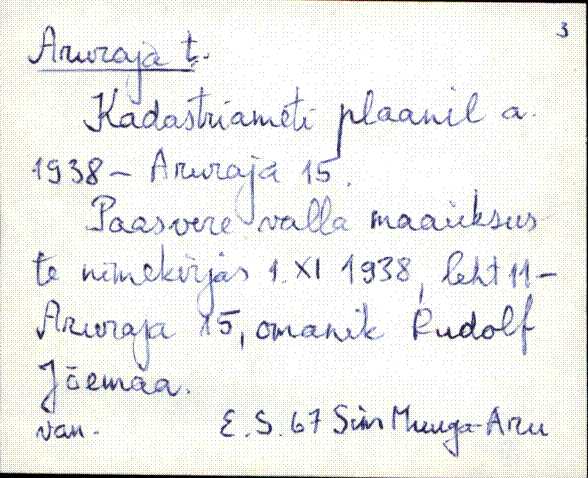 3
Aruraja t.
Kadastriameti plaanil a.
1938 – Aruraja 15.
Paasvere valla maaüksus
te nimekirjas 1. XI 1938, leht 11 –
Aruraja 15, omanik Rudolf
Jõemaa.
van. E. S. 67 Sim Muuga-Aru